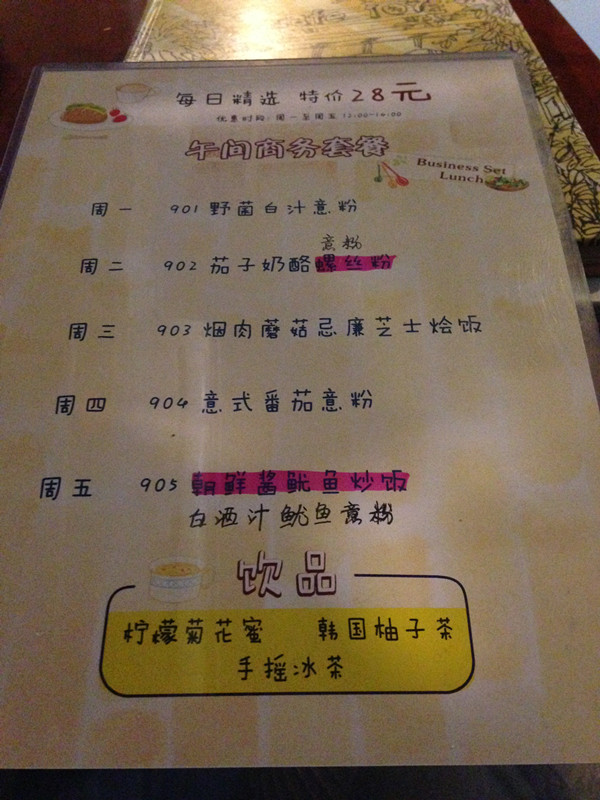 每日精选 特价28元
优惠时段:周一至周五 12:00-14:00
午间商务套餐
Business Set
Lunch
周一 901 野菌白汁意粉
意粉
周二 902 茄子奶酪螺丝粉
周三 903 烟肉蘑菇忌廉芝士烩饭
周四 904 意式番茄意粉
周五 905 朝鲜酱鱿鱼炒饭
白酒汁鱿鱼意粉
饮品
柠檬菊花蜜 韩国柚子茶
手摇冰茶